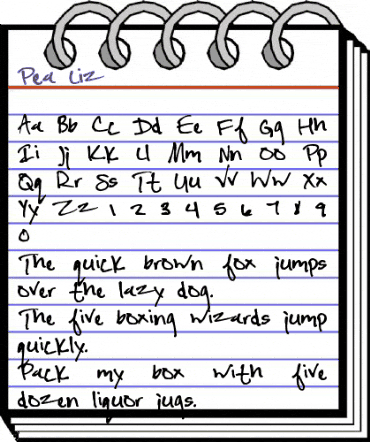 Pea Liz
Aa Bb Cc Dd Ee Ff Gg Hh
Ii Jj KK Ll Mm Nn Oo Pp
Qq Rr Ss Tt Uu Vv Ww Xx
Yy Zz 1 2 3 4 5 6 7 8 9
0
The quick brown fox jumps
over the lazy dog.
The five boxing wizards jump
quickly.
Pack my box with five
dozen liquor jugs.